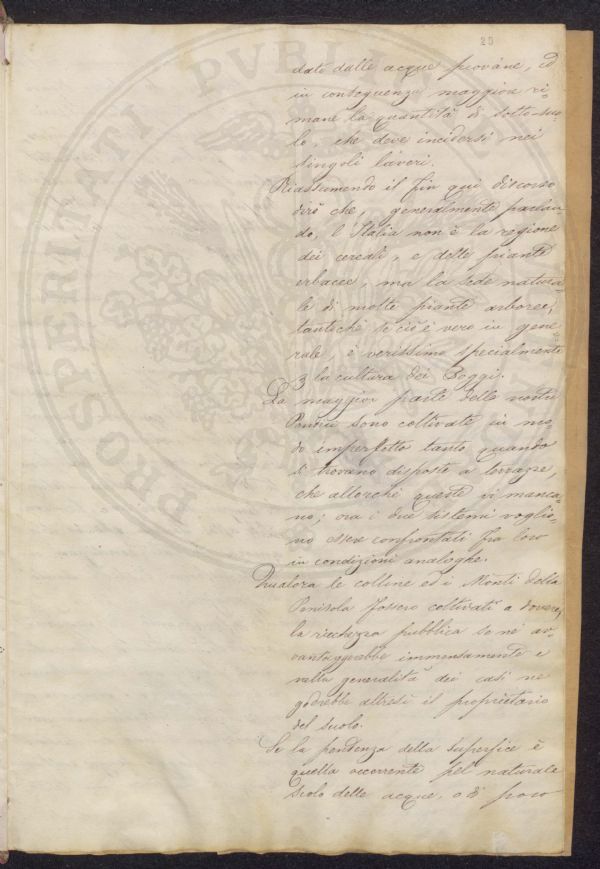 25
dato dalle acque piovane, ed
in conseguenza maggiore ri
mane la quantità di sotto-suo
lo, che deve incidersi nei
singoli lavori.
Riassumendo il fin qui discorso
dirò che, generalmente parlan
do, l'Italia non è la regione
dei cereali, e delle piante
erbacee, ma la sede natura
le di molte piante arboree;
tantochè se ciò è vero in gene
rale, è verissimo specialmente
la cultura dei Poggi.
La maggior parte delle nostre
sono coltivate in mo
do imperfetto tanto quando
si trovano disposte a terrazze,
che allorchè queste vi manca
no; ora i due sistemi voglio
no essere confrontati fra loro
in condizioni analoghe.
Qualora le colline ed i Monti della
Penisola fossero coltivati a dovere,
la ricchezza pubblica se ne av
vantaggerebbe immensamente e
nella generalità dei casi ne
godrebbe altresì il proprietario
del suolo.
Se la pendenza della superfice è
quella occorrente pel naturale
scolo delle acque, o di poco
PROSPERITATI PUBLICAE